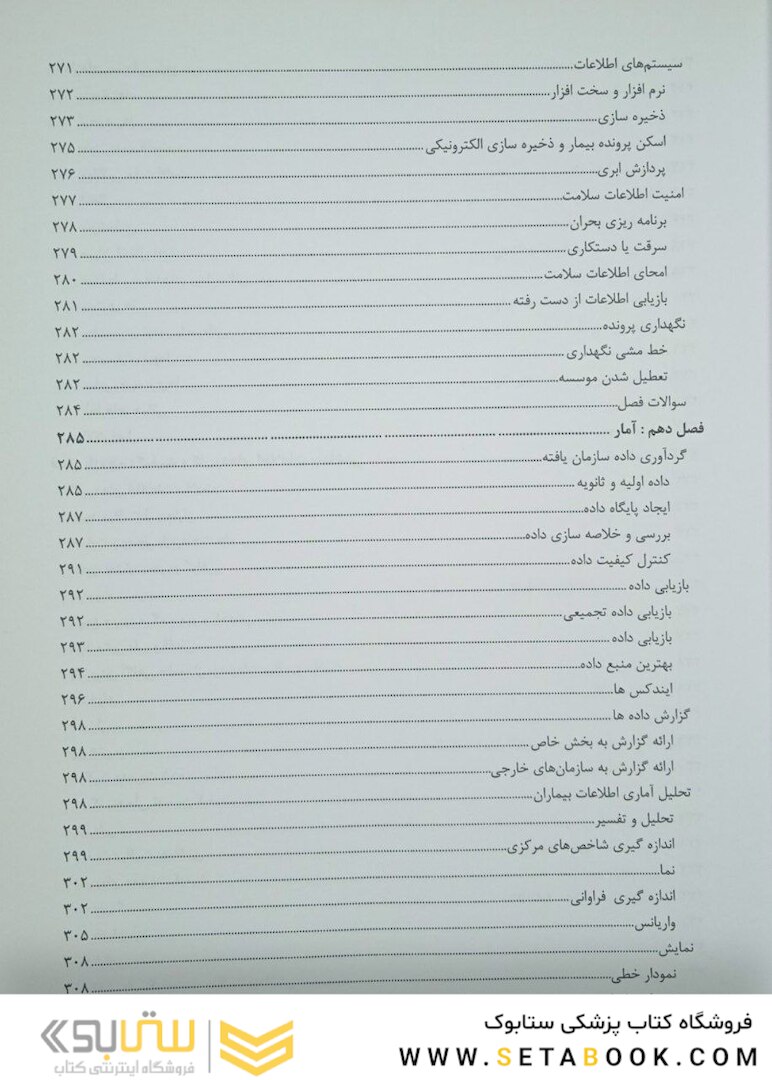 سیستم‌های اطلاعات ........ ۲۷۱
نرم افزار و سخت افزار ........ ۲۷۲
ذخیره سازی ........ ۲۷۳
اسکن پرونده بیمار و ذخیره سازی الکترونیکی ........ ۲۷۵
پردازش ابری ........ ۲۷۶
امنیت اطلاعات سلامت ........ ۲۷۷
برنامه ریزی بحران ........ ۲۷۸
سرقت یا دستکاری ........ ۲۷۹
امحای اطلاعات سلامت ........ ۲۸۰
بازیابی اطلاعات از دست رفته ........ ۲۸۱
نگهداری پرونده ........ ۲۸۲
خط مشی نگهداری ........ ۲۸۲
تعطیل شدن موسسه ........ ۲۸۲
سوالات فصل ........ ۲۸۴
فصل دهم : آمار ........ ۲۸۵
گردآوری داده سازمان یافته ........ ۲۸۵
داده اولیه و ثانویه ........ ۲۸۵
ایجاد پایگاه داده ........ ۲۸۷
بررسی و خلاصه سازی داده ........ ۲۸۷
کنترل کیفیت داده ........ ۲۹۱
بازیابی داده ........ ۲۹۲
بازیابی داده تجمیعی ........ ۲۹۲
بازیابی داده ........ ۲۹۳
بهترین منبع داده ........ ۲۹۴
ایندکس ها ........ ۲۹۶
گزارش داده ها ........ ۲۹۸
ارائه گزارش به بخش خاص ........ ۲۹۸
ارائه گزارش به سازمان‌های خارجی ........ ۲۹۸
تحلیل آماری اطلاعات بیماران ........ ۲۹۸
تحلیل و تفسیر ........ ۲۹۹
اندازه گیری شاخص‌های مرکزی ........ ۲۹۹
نما ........ ۳۰۲
اندازه گیری فراوانی ........ ۳۰۲
واریانس ........ ۳۰۵
نمایش ........ ۳۰۸
نمودار خطی ........ ۳۰۸
فروشگاه کتاب پزشکی ستابوک
WWW.SETABOOK.COM
ستابوک
فروشگاه اینترنتی کتاب